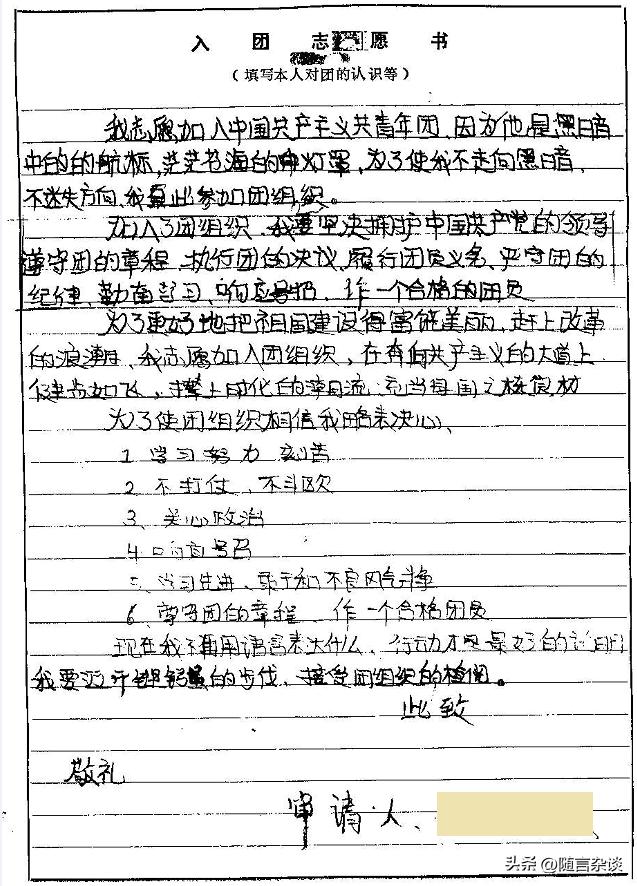 入团志愿书
（填写本人对团的认识等）
我志愿加入中国共产主义共青年团，因为他是黑暗
中的的航标，茫茫书海的灯罩，为了使我不走向黑暗，
不迷失方向，我在此参加团组织。
加入了团组织，我要坚决拥护中国共产党的领导
遵守团的章程，执行团的决议，履行团员义务，严守团的
纪律，勤奋学习，响应号招，作一个合格的团员
为了更好地把祖国建设得富饶美丽，赶上改革
的浪潮，我志愿加入团组织，在奔向共产主义的大道上
健步如飞，撵上时代的潮流，充当每国之栋
为了使团组织相信我略表决心、
1 学习努力 刻苦
2 不打仗，不斗欧
3、关心政治
4 响应号召
5、学习先进，敢于和不良风气斗争
6、尊守团的章程 作一个合格团员
现在我不再用语言表达什么，行动才是最好的证明
我要迈开的步伐，接受团组织的检阅。
此致
敬礼
申请人、
头条 @随言杂谈